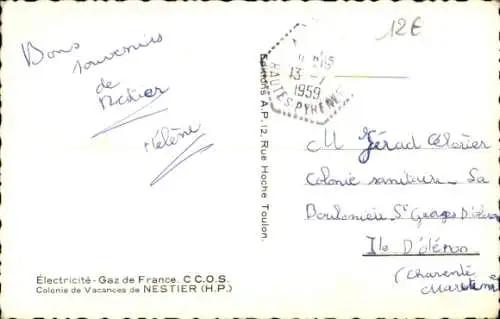 12€
Bons
souvenirs
de
Nestier
Hélène
13 -7
1959
HAUTES PYRENEES
Editions A.P. 12, Rue Hoche Toulon.
M Gérard
Colonie sanitaire - La
Boulonnière St Georges d'
Ile D'oléron
(Charente
Maritime
Électricité - Gaz de France. C C.O.S.
Colonie de Vacances de NESTIER (H.P.)